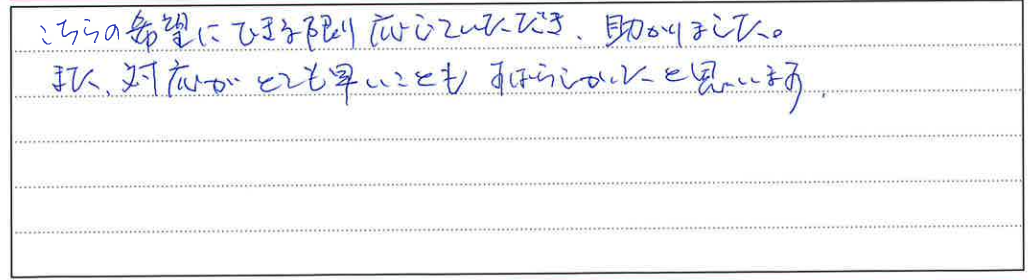 こちらの希望にできる限り応じていただき、助かりました。
また、対応がとても早いこともすばらしかったと思います。